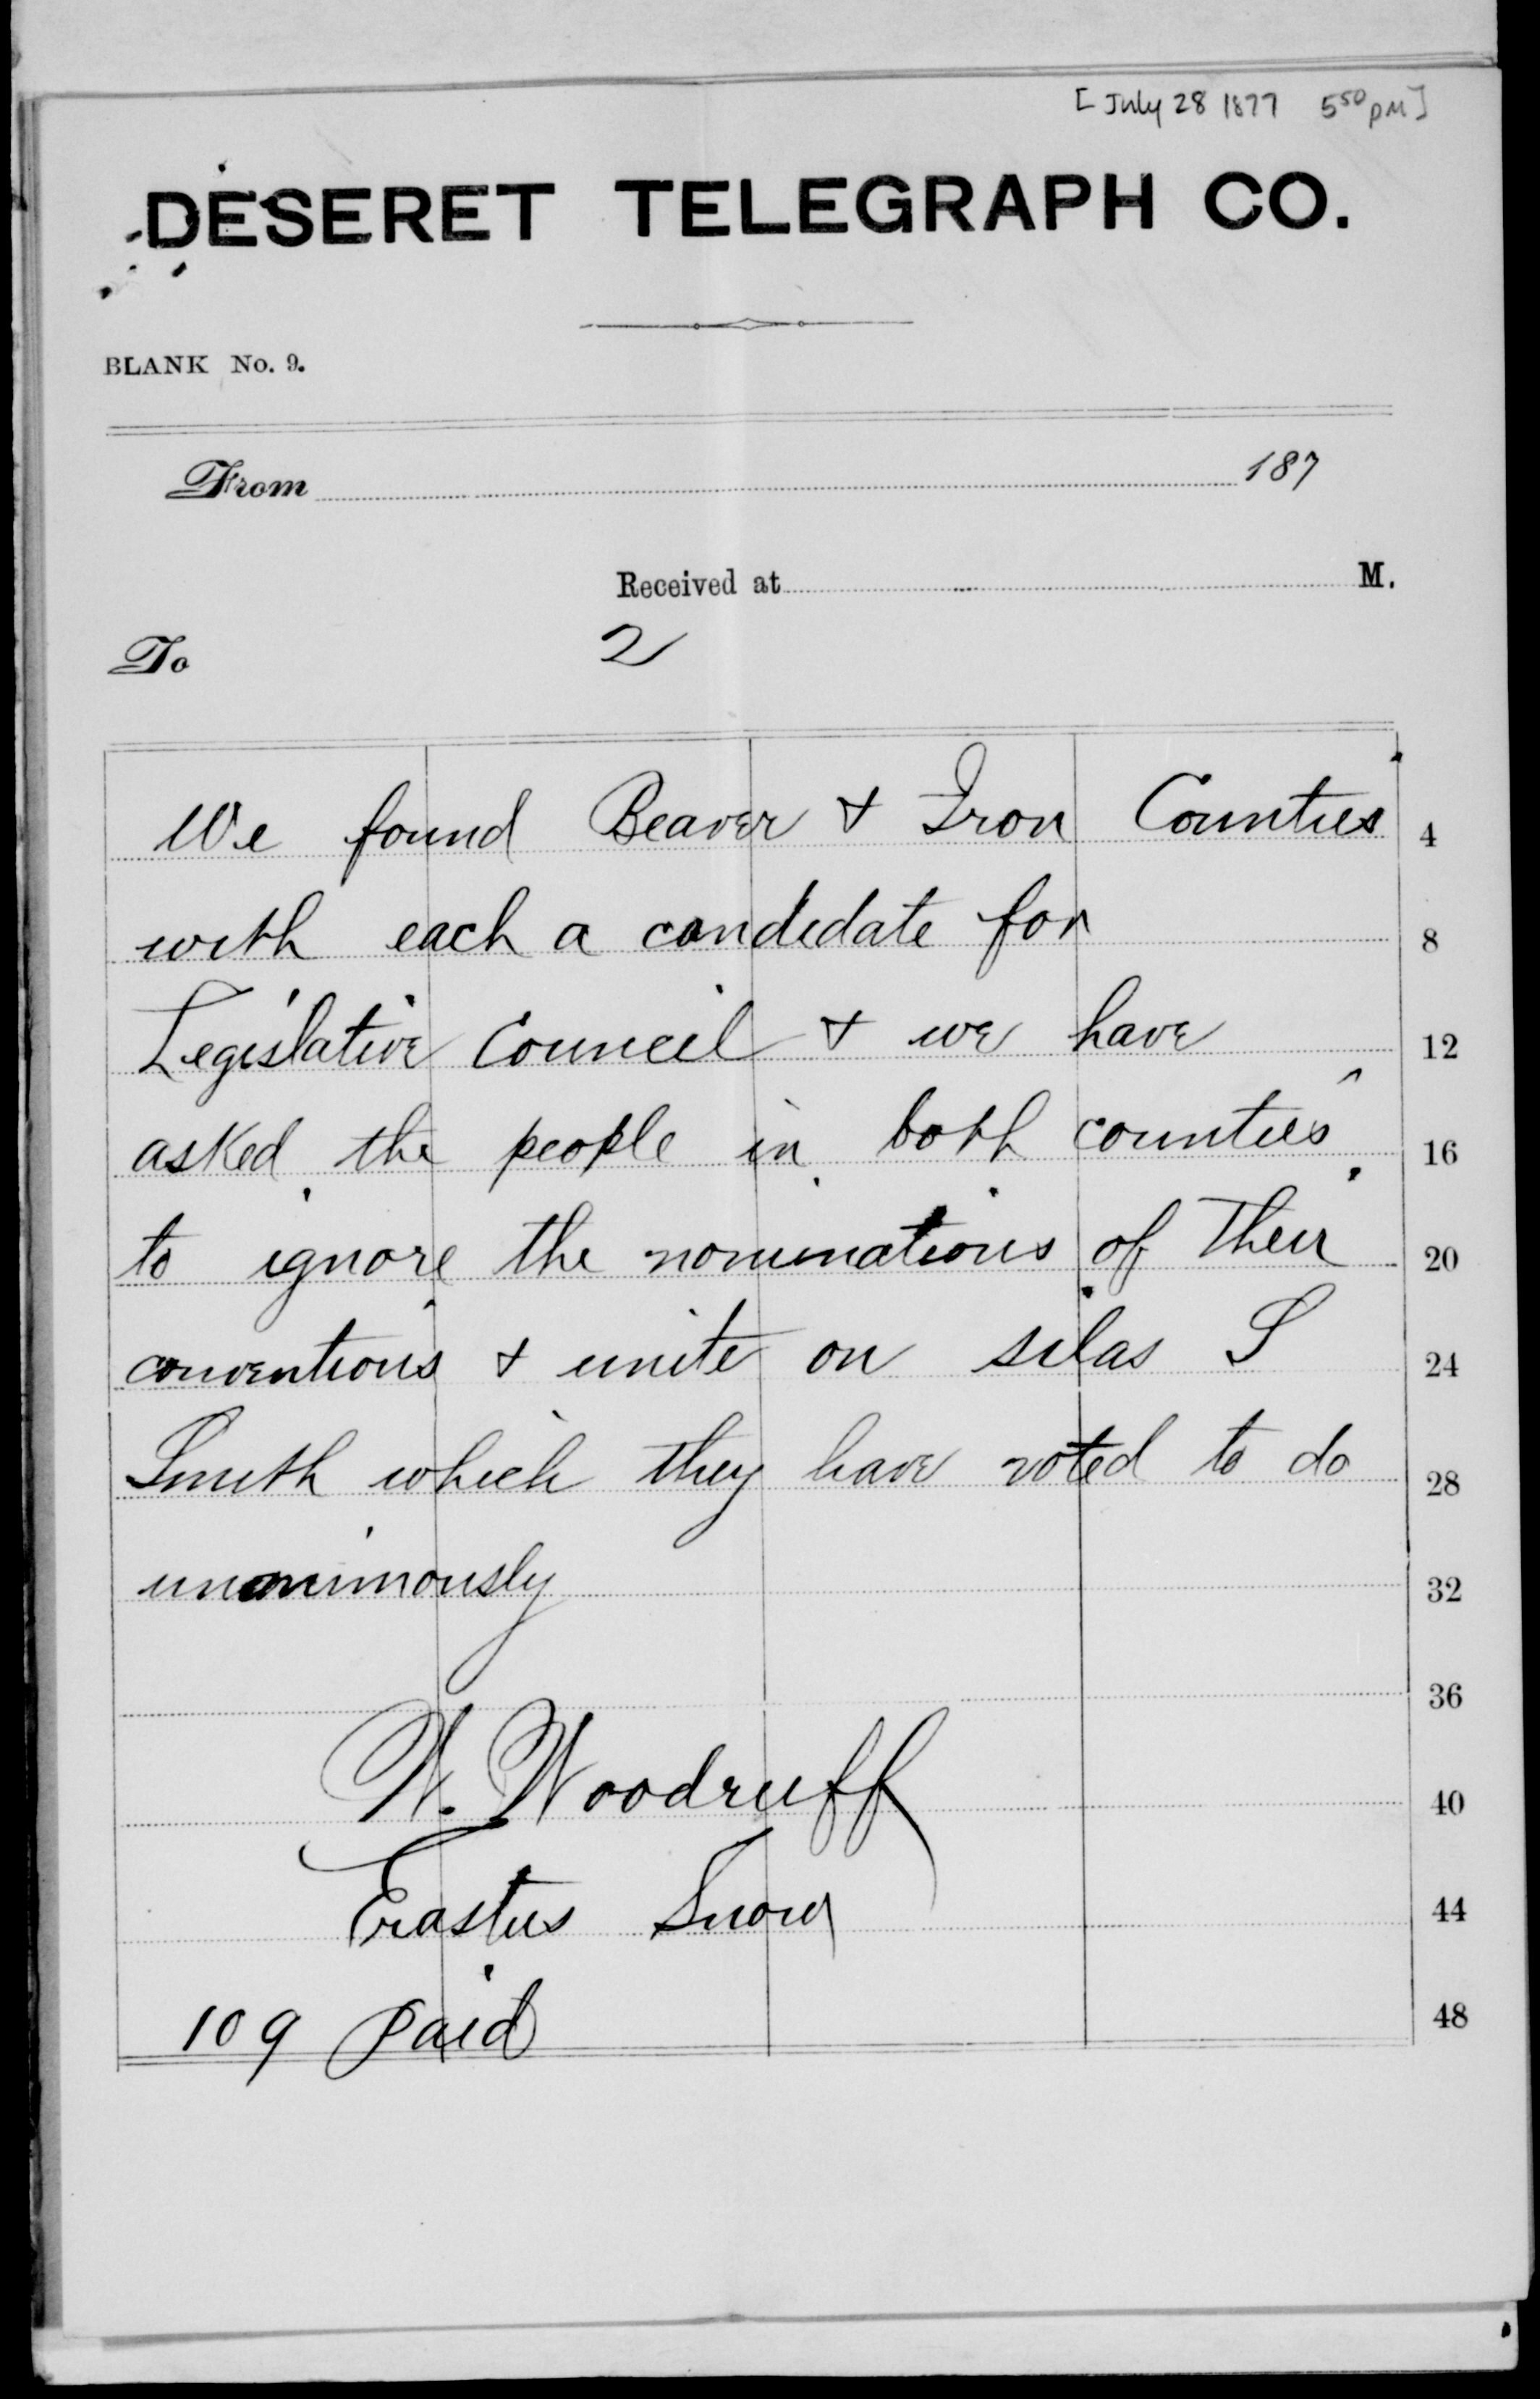 [July 28 1877 5 50 PM]
DESERET TELEGRAPH CO.
BLANK No. 9.
From 187
Received at M.
To 2
We found Beaver & Iron Counties 4
with each a candidate for 8
Legislative Council & we have 12
asked the people in both counties 16
to ignore the nominations of their 20
conventions & unite on silas S 24
Smith which they have voted to do 28
unanimously 32
36
W. Woodruff 40
Erastus Snow 44
109 paid 48